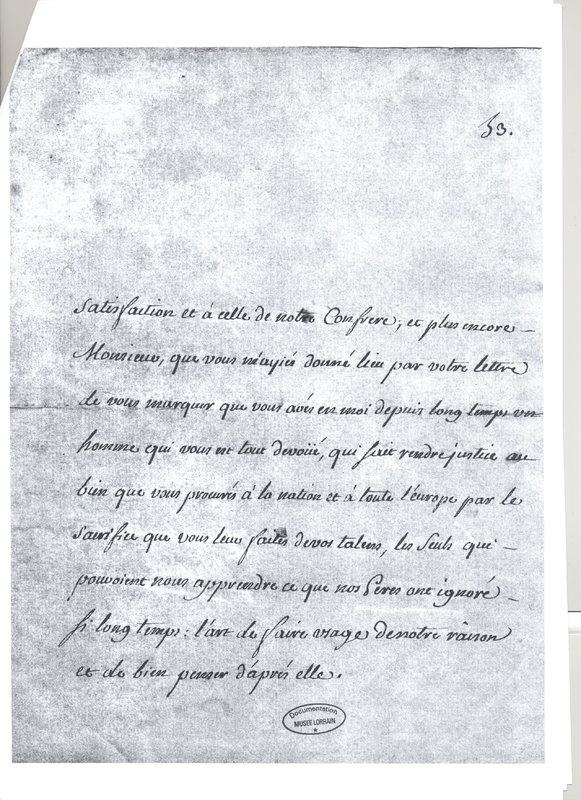 53.
satisfaction et à celle de notre Confrere, et plus encore –
Monsieur, que vous m'ayiés donné lieu par votre lettre
de vous marquer que vous avés en moi depuis long temps un
homme qui vous est tout devoüé, qui sait rendre justice au
bien que vous procurés à la nation et à toute l'europe par le
sacrifice que vous leur faites de vos talens, les seuls qui –
pouvoient nous apprendre ce que nos Peres ont ignoré –
si long temps : l'art de faire usage de notre raison
et de bien penser d'après elle.
Documentation
MUSÉE LORRAIN